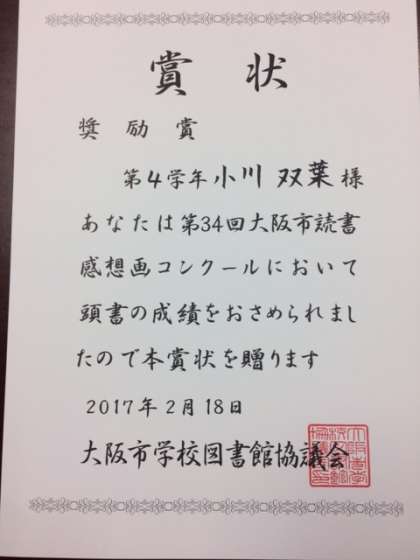 賞状
奨励賞
第4学年小川 双葉様
あなたは第34回大阪市読書
感想画コンクールにおいて
頭書の成績をおさめられまし
たので本賞状を贈ります
2017年2月18日
大阪市学校図書館協議会